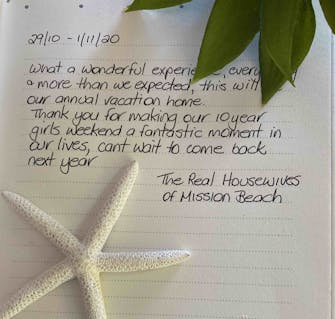 29/10 - 1/11/20
What a wonderful experience, every
& more than we expected, this will
our annual vacation home.
Thank you for making our 10 year
girls weekend a fantastic moment in
our lives, cant wait to come back
next year
The Real Housewives
of Mission Beach